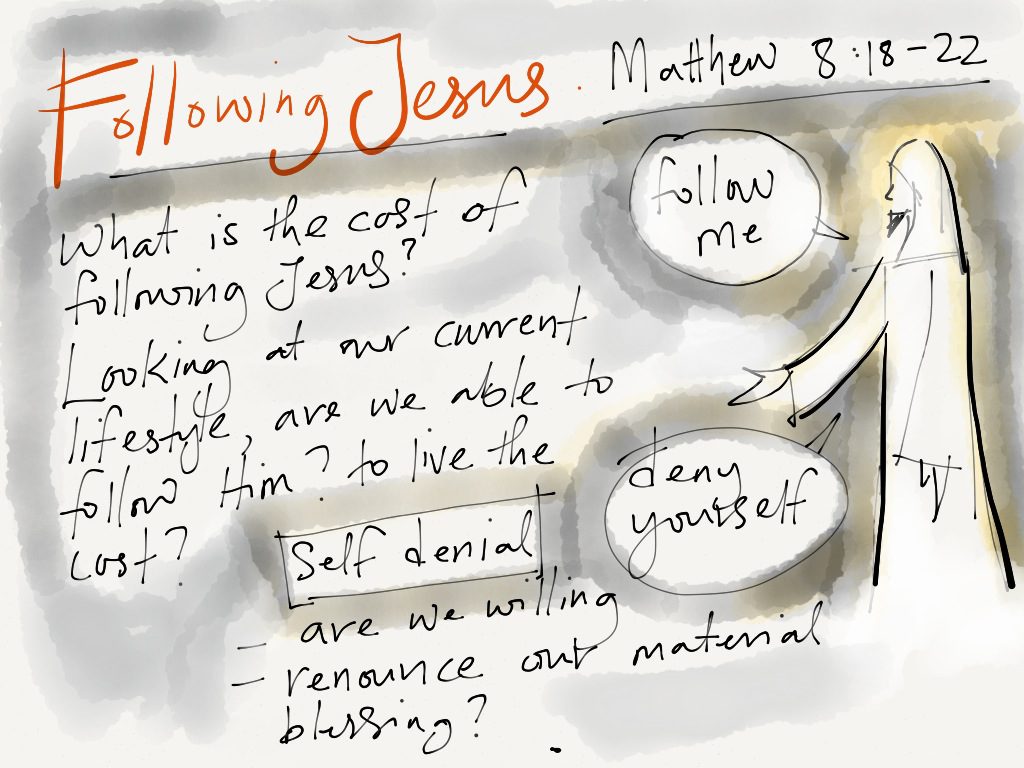 Following Jesus.
Matthew 8:18-22
What is the cost of
following Jesus?
Looking at our current
lifestyle, are we able to
follow Him? to live the
cost?
follow
me
deny
yourself
Self denial
- are we willing
- renounce our material
blessing?